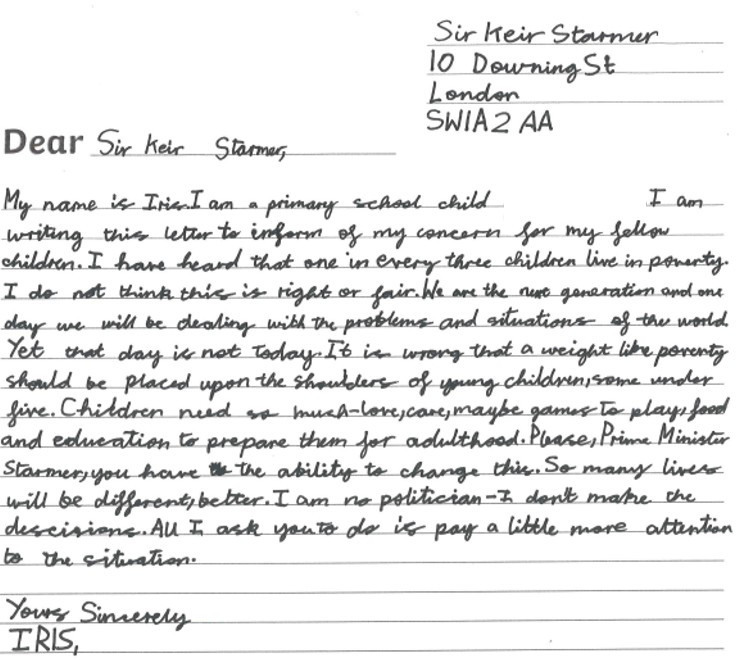 Sir Keir Starmer
10 Downing St
London
SW1A2 AA
Dear Sir Keir Starmer,
My name is Iris.I am a primary school child I am
writing this letter to inform of my concern for my fellow
children. I have heard that one in every three children live in poverty.
I do not think this is right or fair. We are the next generation and one
day we will be dealing with the problems and situations of the world.
Yet that day is not today. It is wrong that a weight like poverty
should be placed upon the shoulders of young children, some under
five. Children need so much-love, care, maybe games to play, food
and education to prepare them for adulthood. Please, Prime Minister
Starmer, you have the ability to change this. So many lives
will be different, better. I am no politician-I don't make the
descisions. All I ask you to do is pay a little more attention
to the situation.
Yours Sincerely
IRIS,